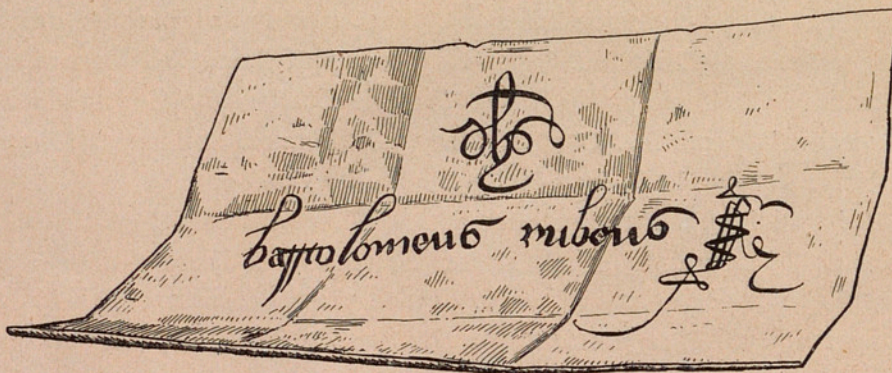 bartolomeus rubeus